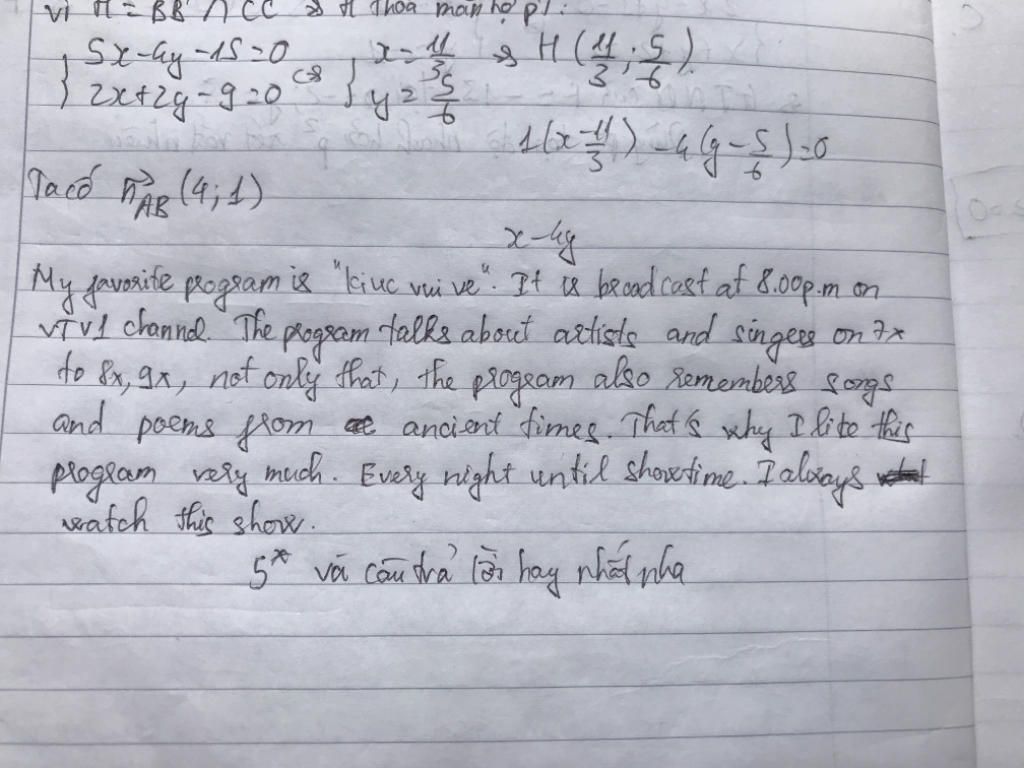 vì H = BB' ∩ CC' => H thỏa mãn hệ pt:
{ 5x - 4y - 15 = 0
{ 2x + 2y - 9 = 0 <=> { x = 11/3 { y = 5/6 => H (11/3; 5/6).
1(x - 11/3) - 4(y - 5/6) = 0
Ta có n⃗AB (4; 1)
x - 4y
My favorite program is "kiuc vui ve". It is broadcast at 8.00p.m on
VTV1 channel. The program talks about artists and singers on 7x
to 8x, 9x, not only that, the program also remembers songs
and poems from ancient times. That's why I like this
program very much. Every night until showtime. I always
watch this show.
5* và câu trả lời hay nhất nha